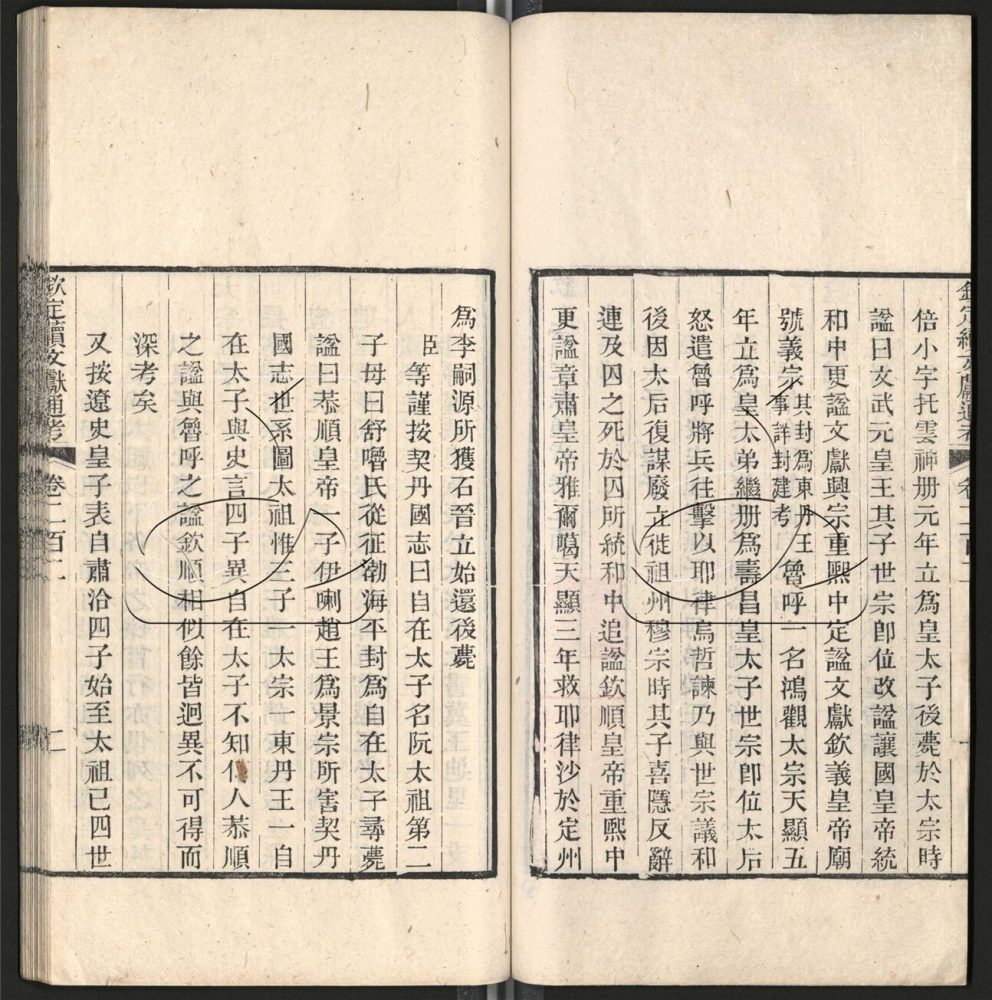 倍小字托雲神册元年立爲皇太子後薨於太宗時
諡曰文武元皇王其子世宗卽位改諡讓國皇帝統
和中更諡文獻興宗重熙中定諡文獻欽義皇帝廟
號義宗其封爲東丹王事詳封建考魯呼一名鴻觀太宗天顯五
年立爲皇太弟繼册爲壽昌皇太子世宗卽位太后
怒遣魯呼將兵往擊以耶律烏哲諫乃與世宗議和
後因太后復謀廢立徙祖州穆宗時其子喜隱反辭
連及囚之死於囚所統和中追諡欽順皇帝重熙中
更諡章肅皇帝雅爾噶天顯三年救耶律沙於定州
欽定續文獻通考 卷二百二
爲李嗣源所獲石晉立始還後薨
臣等謹按契丹國志曰自在太子名阮太祖第二
子母曰舒嚕氏從征渤海平封爲自在太子尋薨
諡曰恭順皇帝一子伊喇趙王爲景宗所害契丹
國志世系圖太祖惟三子一太宗一東丹王一自
在太子與史言四子異自在太子不知何人恭順
之諡與魯呼之諡欽順相似餘皆迥異不可得而
深考矣
又按遼史皇子表自肅洽四子始至太祖已四世
欽定續文獻通考 卷二百二 二